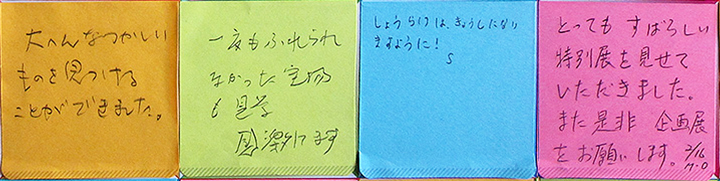 大へんなつかしい
ものを見つける
ことができました。
一度もふれられ
なかった宝物
も見学
ます
しょうらいは、きょうしになり
ますように!
S
とっても すばらしい
特別展を見せて
いただきました。
また是非 企画展
をお願いします。2/16
M.O